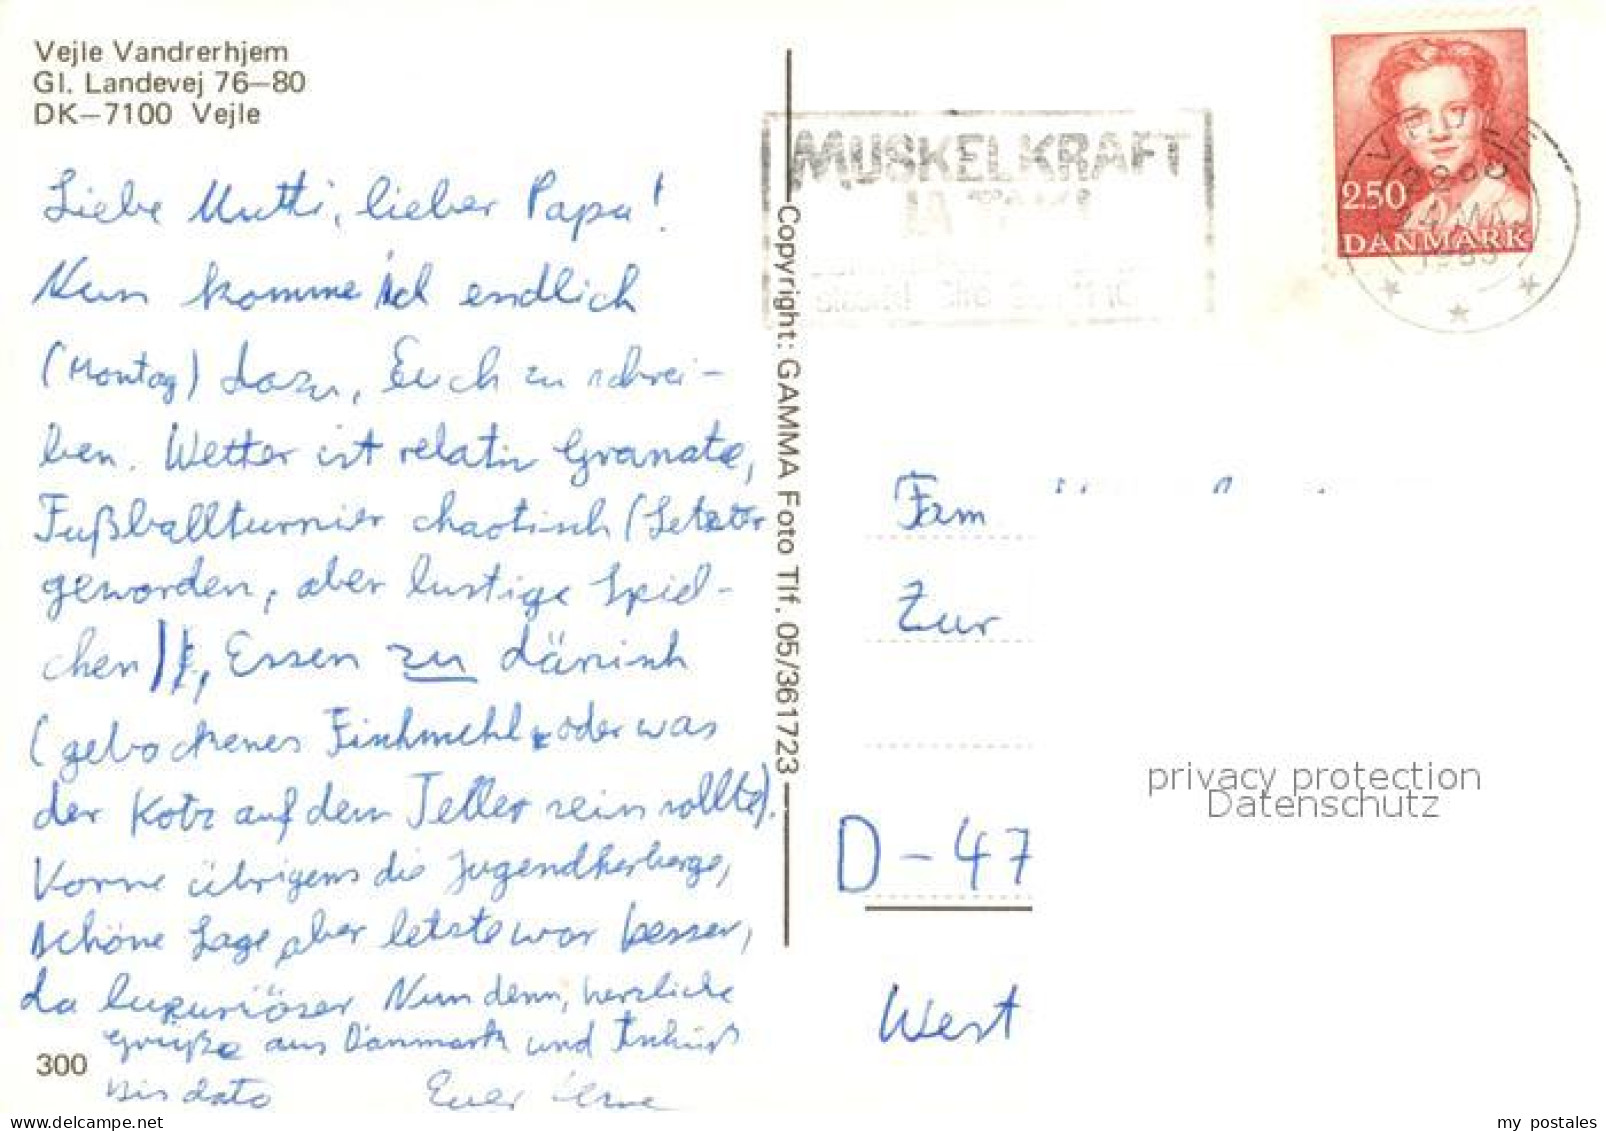 Vejle Vandrerhjem
Gl. Landevej 76–80
DK–7100 Vejle
Liebe Mutti, lieber Papa!
Nun komme ich endlich
(Montag) dazu, Euch zu schrei-
ben. Wetter ist relativ Granate,
Fußballturnier chaotisch (Letzter
geworden, aber lustige Spiel-
chen), Essen zu dänisch
(gebackenes Fischmehl oder was
der Kotz auf dem Teller sein sollte).
Vorne übrigens die Jugendherberge,
schöne Lage, aber letzte war besser,
da luxuriöser. Nun denn, herzliche
Grüße aus Dänmark und Tschüß
Bis dato Euer
300
Copyright: GAMMA Foto Tlf. 05/361723
MUSKELKRAFT
JA TAK!
VEJLE
1985
2.50
DANMARK
Fam
Zur
D-47
West
privacy protection
Datenschutz
my_postales